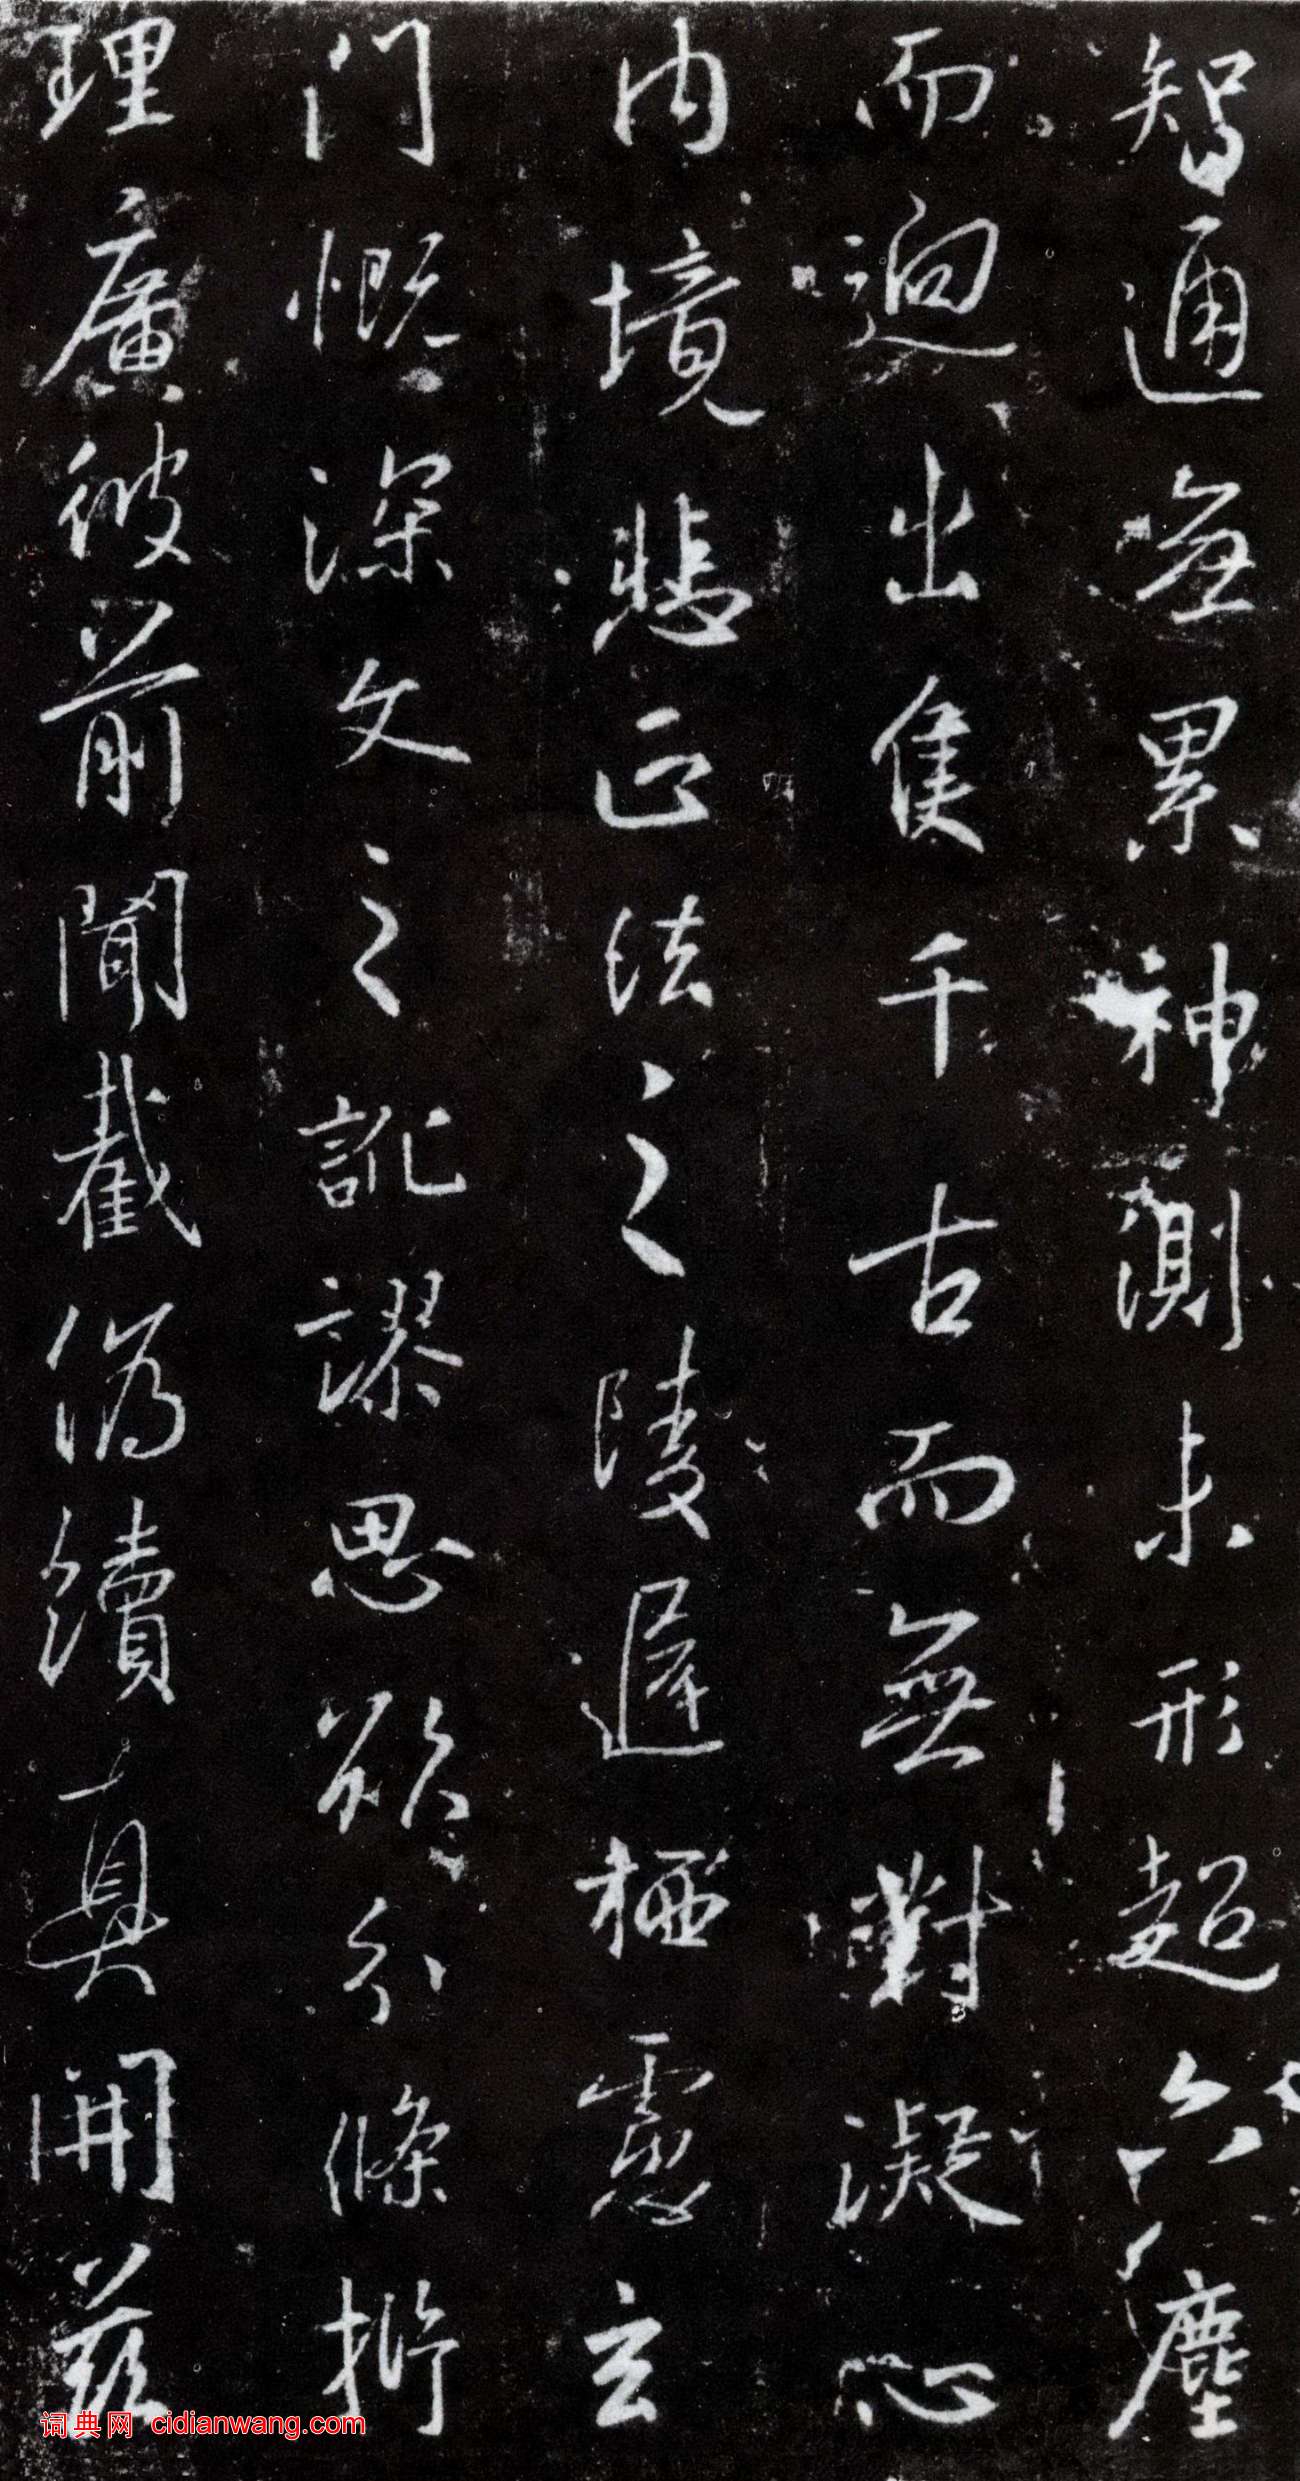 智通無累神測未形超六塵
而迥出隻千古而無對凝心
内境悲正法之陵遲栖慮玄
門慨深文之訛謬思欲分條
理廣彼前聞截偽續真開茲
词典网 cidianwang.com